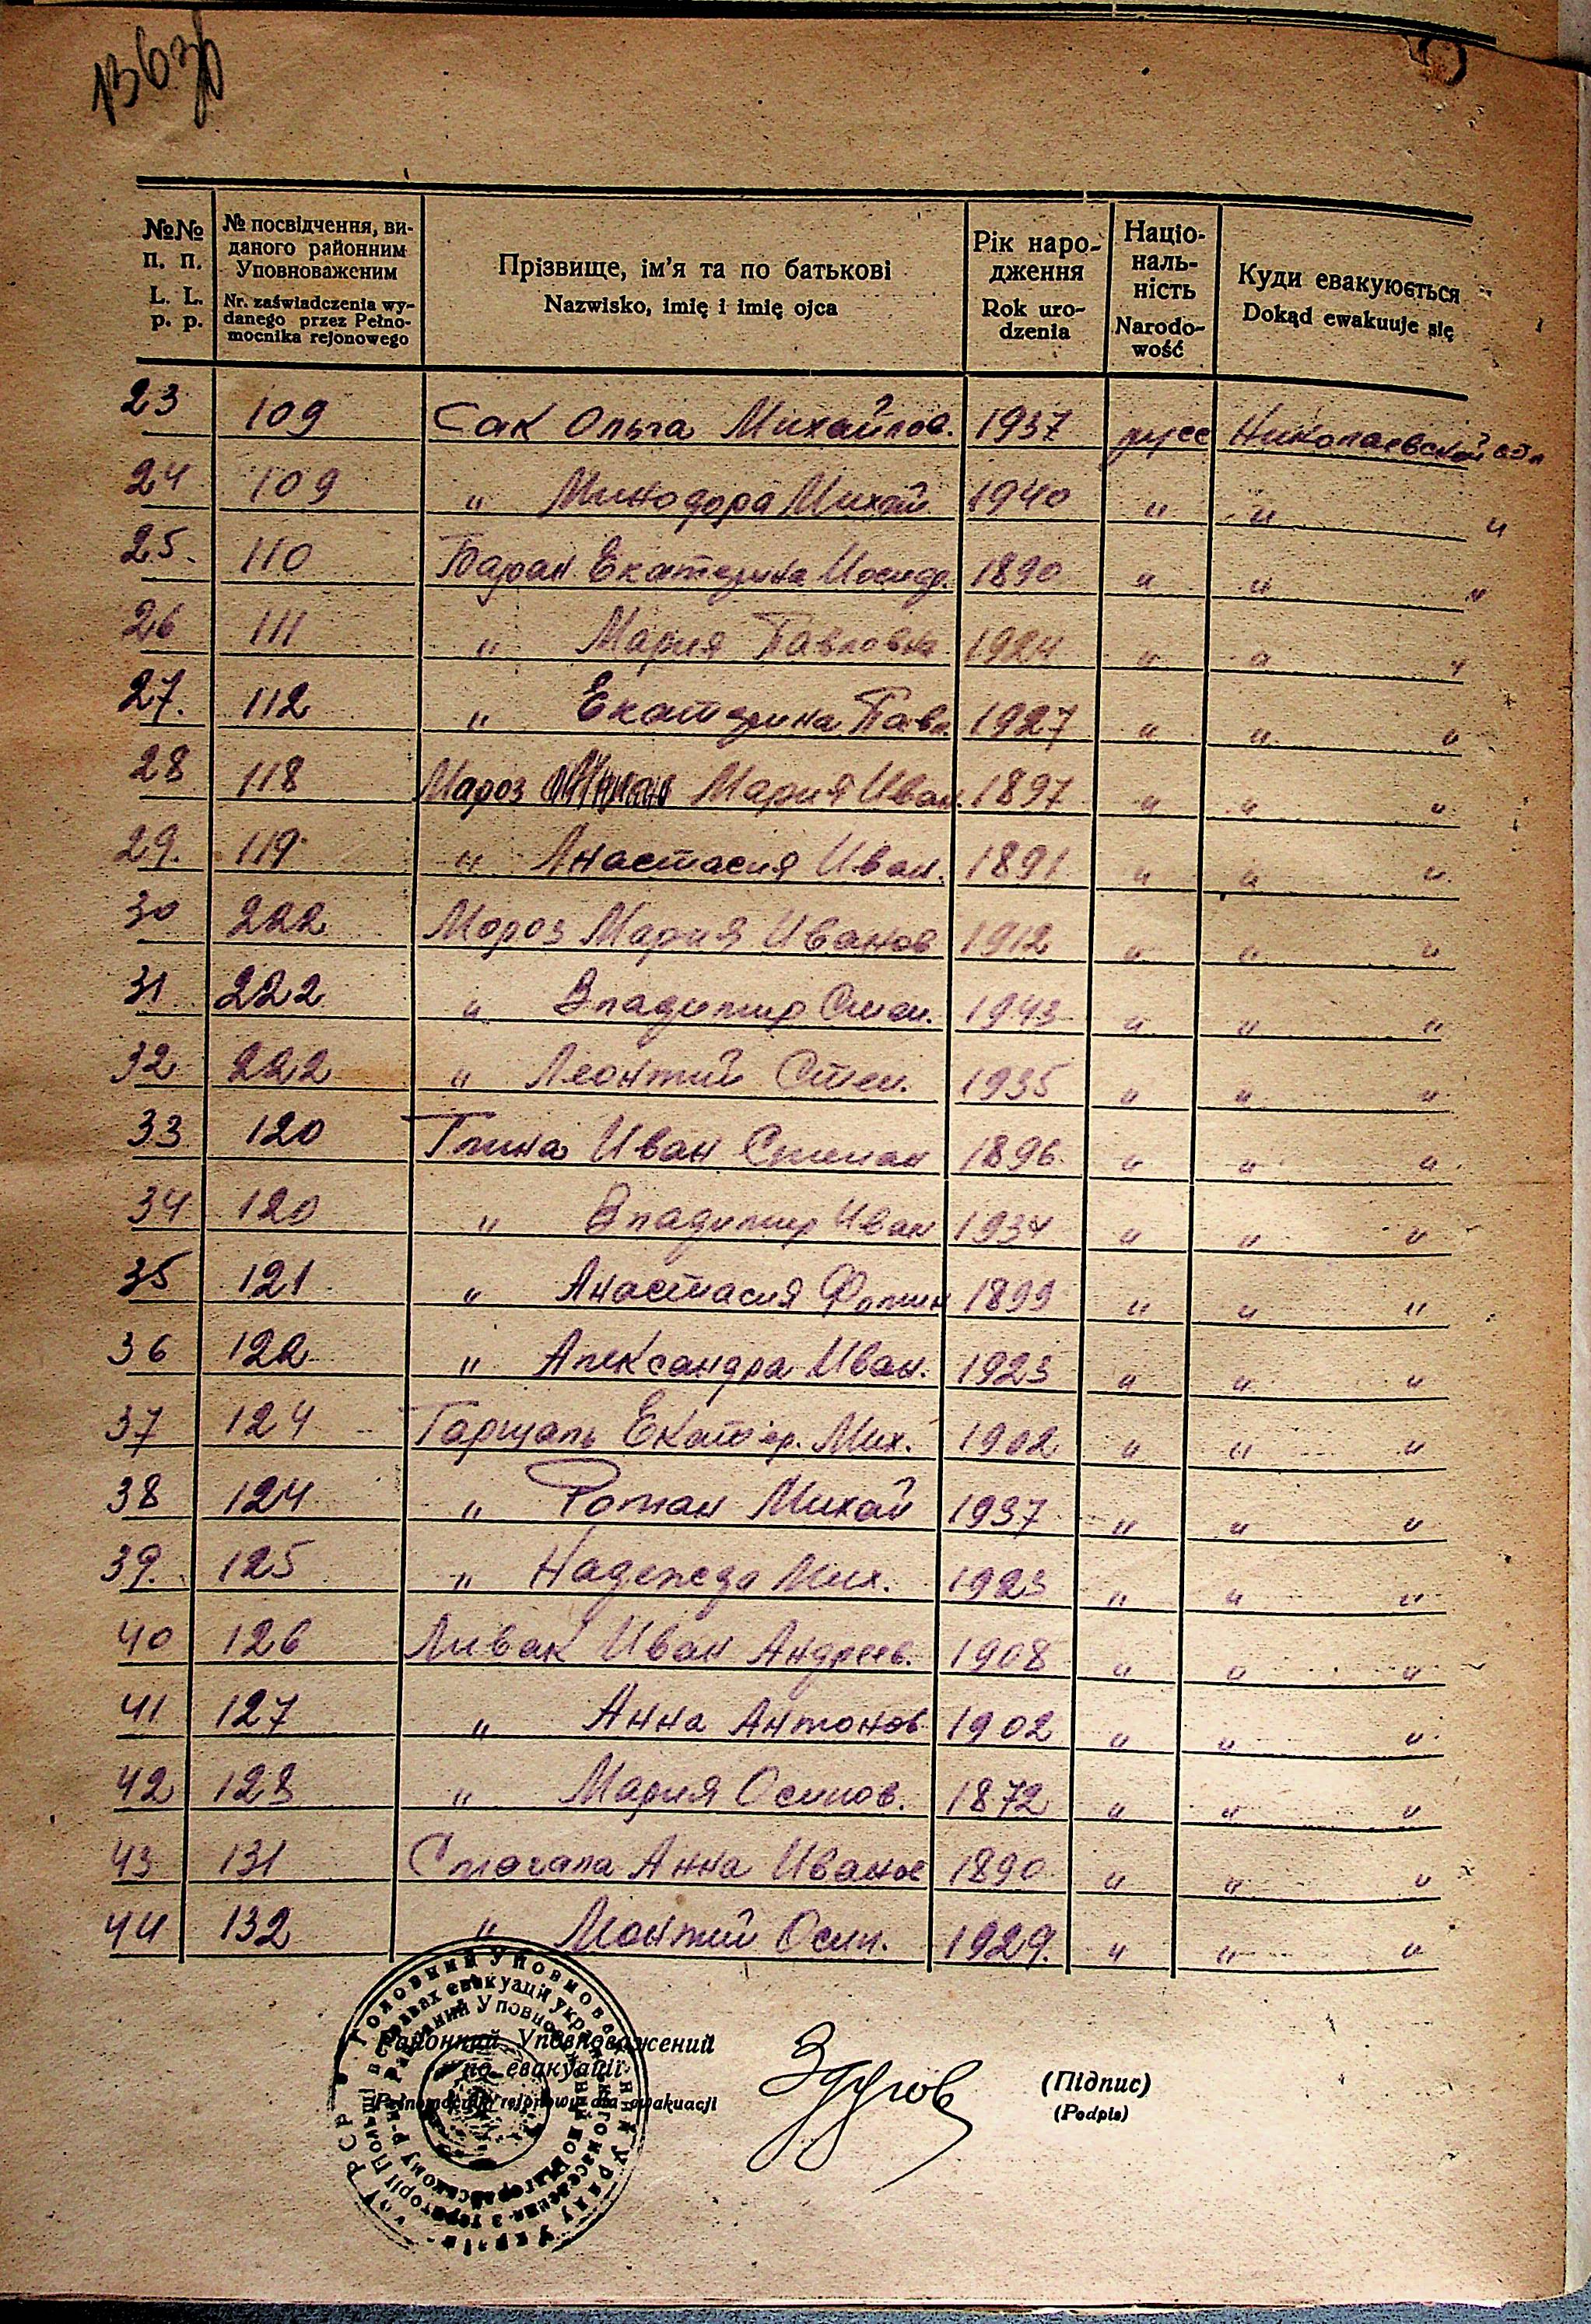 №№ п. п. L. L. p. p.
№ посвідчення, виданого районним Уповноваженим Nr. zaświadczenia wydanego przez Pełnomocnika rejonowego
Прізвище, ім'я та по батькові Nazwisko, imię i imię ojca
Рік народження Rok urodzenia
Національність Narodowość
Куди евакуюється Dokąd ewakuuje się
23 109 Сак Ольга Михайлов. 1937 русс Николаевской обл
24 109 " Минодора Михай 1940 " " "
25. 110 Баран Екатерина Иосиф. 1890 " " "
26 111 " Мария Павловна 1924 " " "
27. 112 " Екатерина Павл 1927 " " "
28 118 Мароз Мария Иван. 1897 " " "
29. 119 " Анастасия Иван. 1891 " " "
30 222 Мороз Мария Иванов 1912 " " "
31 222 " Владимир Степ. 1943 " " "
32 222 " Леонтий Степ. 1935 " " "
33 120 Глина Иван Степан 1896 " " "
34 120 " Владимир Иван 1934 " " "
35 121 " Анастасия Фотин 1899 " " "
36 122 " Александра Иван. 1923 " " "
37 124 Гаршаль Екатер. Мих. 1902 " " "
38 124 " Роман Михай 1937 " " "
39. 125 " Надежда Мих. 1923 " " "
40 126 Ливак Иван Андреев. 1908 " " "
41 127 " Анна Антонов 1902 " " "
42 128 " Мария Осипов. 1872 " " "
43 131 Анна Иванов 1890 " " "
44 132 " Осип. 1929. " " "
Районний Уповноважений
по евакуації
Pełnomocnik rejonowy dla ewakuacji
(Підпис)
(Podpis)